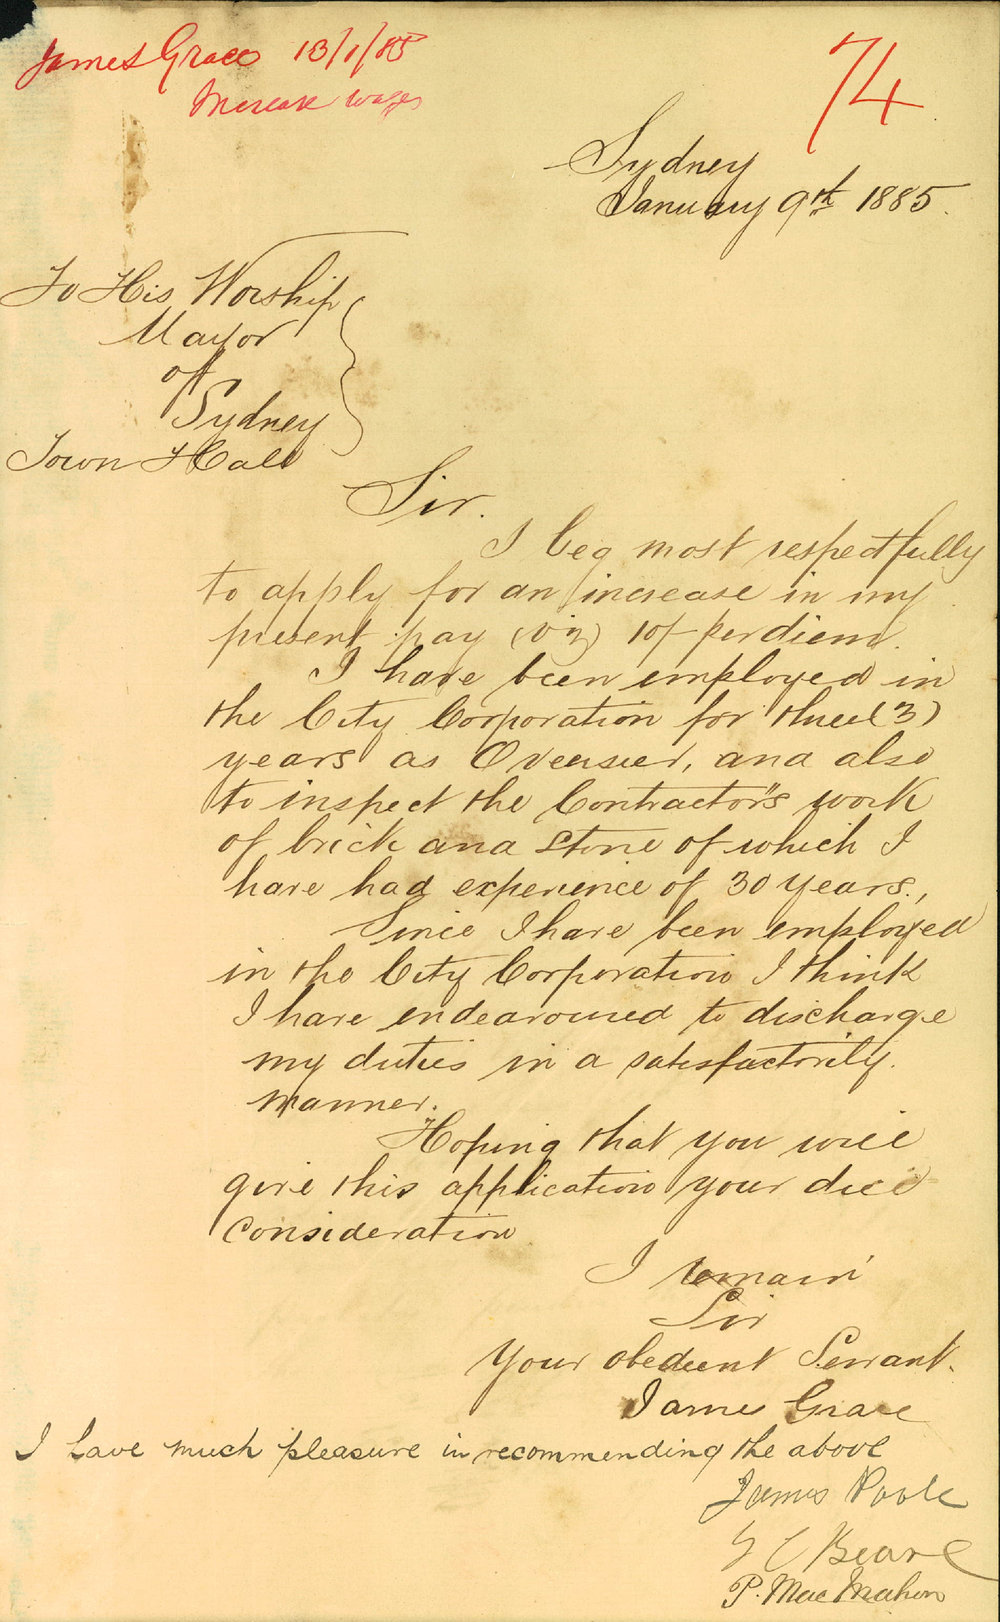 James Grace 13/1/85
Increase wages
74
Sydney
January 9th 1885.
To His Worship
Mayor
of
Sydney
Town Hall
Sir.
I beg most respectfully
to apply for an increase in my
present pay (viz) 10/- per diem.
I have been employed in
the City Corporation for three (3)
years as Overseer, and also
to inspect the Contractor's work
of brick and Stone of which I
have had experience of 30 years.,
Since I have been employed
in the City Corporation I think
I have endeavoured to discharge
my duties in a satisfactorily
manner.
Hoping that you will
give this application your due
consideration
I remain
Sir
Your obedient Servant.
James Grace
I have much pleasure in recommending the above
James Poole
C Beare
P. Mac Mahon